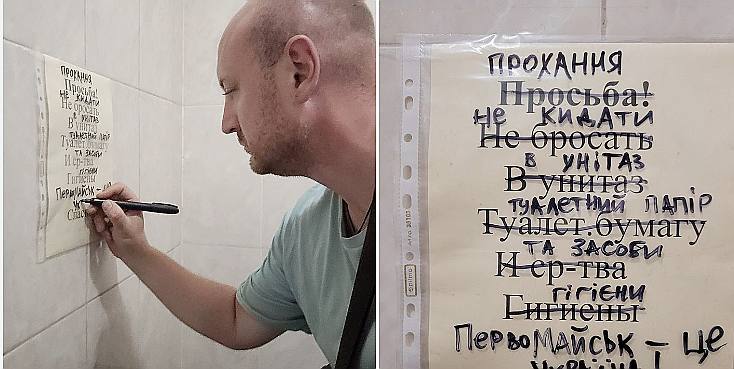 ПРОХАННЯ
Просьба!
НЕ КИДАТИ
Не бросать
В УНІТАЗ
В унитаз
ТУАЛЕТНИЙ ПАПІР
Туалет.бумагу
ТА ЗАСОБИ
И ср-тва
ГІГІЄНИ
Гигиены
ПЕРВОМАЙСЬК – ЦЕ
ПРОХАННЯ
Просьба!
НЕ КИДАТИ
Не бросать
В УНІТАЗ
В унитаз
ТУАЛЕТНИЙ ПАПІР
Туалет.бумагу
ТА ЗАСОБИ
И ср-тва
ГІГІЄНИ
Гигиены
ПЕРВОМАЙСЬК – ЦЕ
УКРАЇНА!